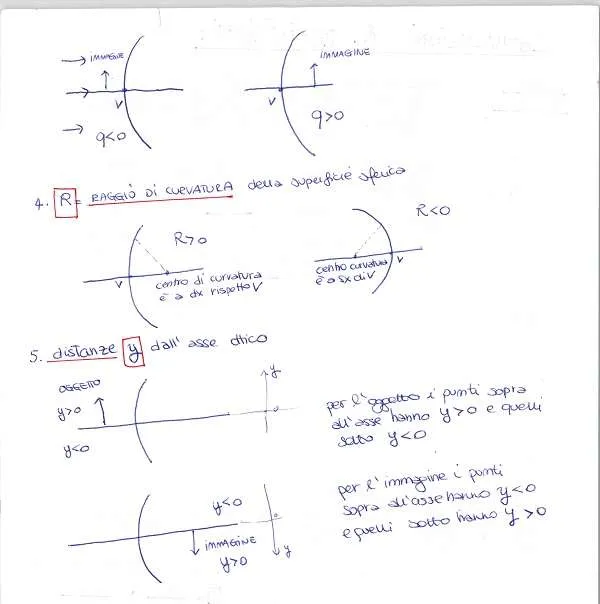 IMMAGINE
V
q<0
IMMAGINE
V
q>0
4. R = RAGGIO DI CURVATURA della superficie sferica
R>0
V
centro di curvatura
è a dx rispetto V
R<0
centro curvatura
è a sx di V
V
5. distanze y dall' asse ottico
OGGETTO
y>0
y<0
y
per l'oggetto i punti sopra
all'asse hanno y>0 e quelli
sotto y<0
y<0
IMMAGINE
y>0
y
per l'immagine i punti
sopra all'asse hanno y<0
e quelli sotto hanno y>0